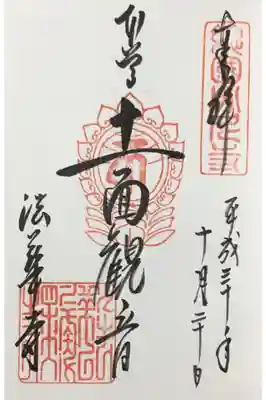 奉拝
平成三十年
十月二十日
本尊
十一面觀音
法華寺